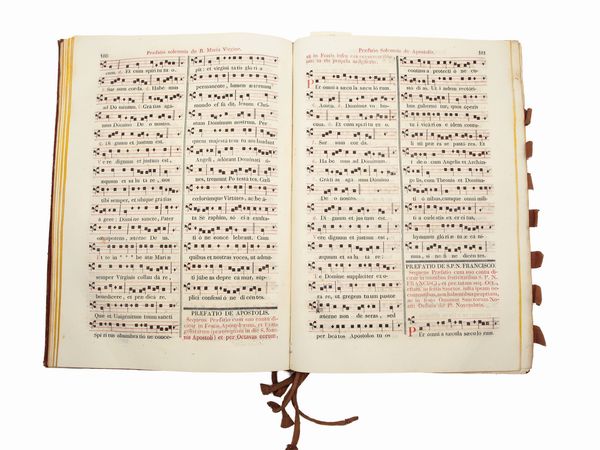 100
Prefatio solemnis de B. Maria Virgine.
cum. Et cum spiritu tu o.
Sur sum corda. Habe mus
ad Do minum. Gratias aga
mus Domino De o nostro.
Di gnum et justum est.
Ve re dignum et justum est,
aequum et salu ta re, nos
tibi semper, et ubique gratias
a gere: Domine sancte, Pater
omnipotens, aeterne De us.
Et te in beatae Mariae
semper Virginis collau da re,
benedicere, et prae dica re.
Quae et Unigenitum tuum sancti
spiritus obumbratio ne conce-
pit: et virgini tatis glori a
permanente, lumen ae ternum
mundo ef fu dit, Jesum Chri-
stum Dominum nostrum. Per
quem majesta tem tu am laudant
Angeli, adorant Dominati o-
nes, tremunt Po testa tes. Caeli
caelorumque Virtutes, ac be a-
ta Seraphim, so ci a exulta-
ti o ne concelebrant. Cum
quibus et nostras voces, ut admit-
ti jubeas depre ca mur, sup-
plici confessi o ne di centes.
PREFATIO DE APOSTOLIS.
Sequens Prefatio cum suo cantu di-
citur in Festis Apostolorum, et Evan-
gelistarum (praeterquam in die S. Joan-
nis Apostoli) et per Octavas eorum,
Prefatio Solemnis de Apostolis.
101
P er omni a saecula saeculo rum.
Amen. Dominus vo bis-
cum. Et cum spiritu tu o.
Sur sum cor da.
Ha be mus ad Dominum.
Grati as aga mus Domino
De o nostro.
Di gnum et justum est.
Ve re dignum et justum est,
aequum et salu ta re
te Domine suppliciter ex o-
ra re, ut gregem tu um pastor
aeterne non de seras, sed
per beatos Apostolos tu os
continu a protecti o ne cu-
sto di as. Ut i isdem rectori-
bus guberne tur, quos operis
tu i vicari os eidem contu-
li sti prae es se pasto res. Et
ide o cum Angelis et Archan-
gelis, cum Thronis et Domina-
ti o nibus, cumque omni mili-
ti a caelestis exercitus,
hymnum glori ae tu ae ca ni-
mus, si ne fi ne di cen tes.
PREFATIO DE S.P.N. FRANCISCO.
Sequens Prefatio cum suo cantu di-
P er omni a saecula saeculo rum.